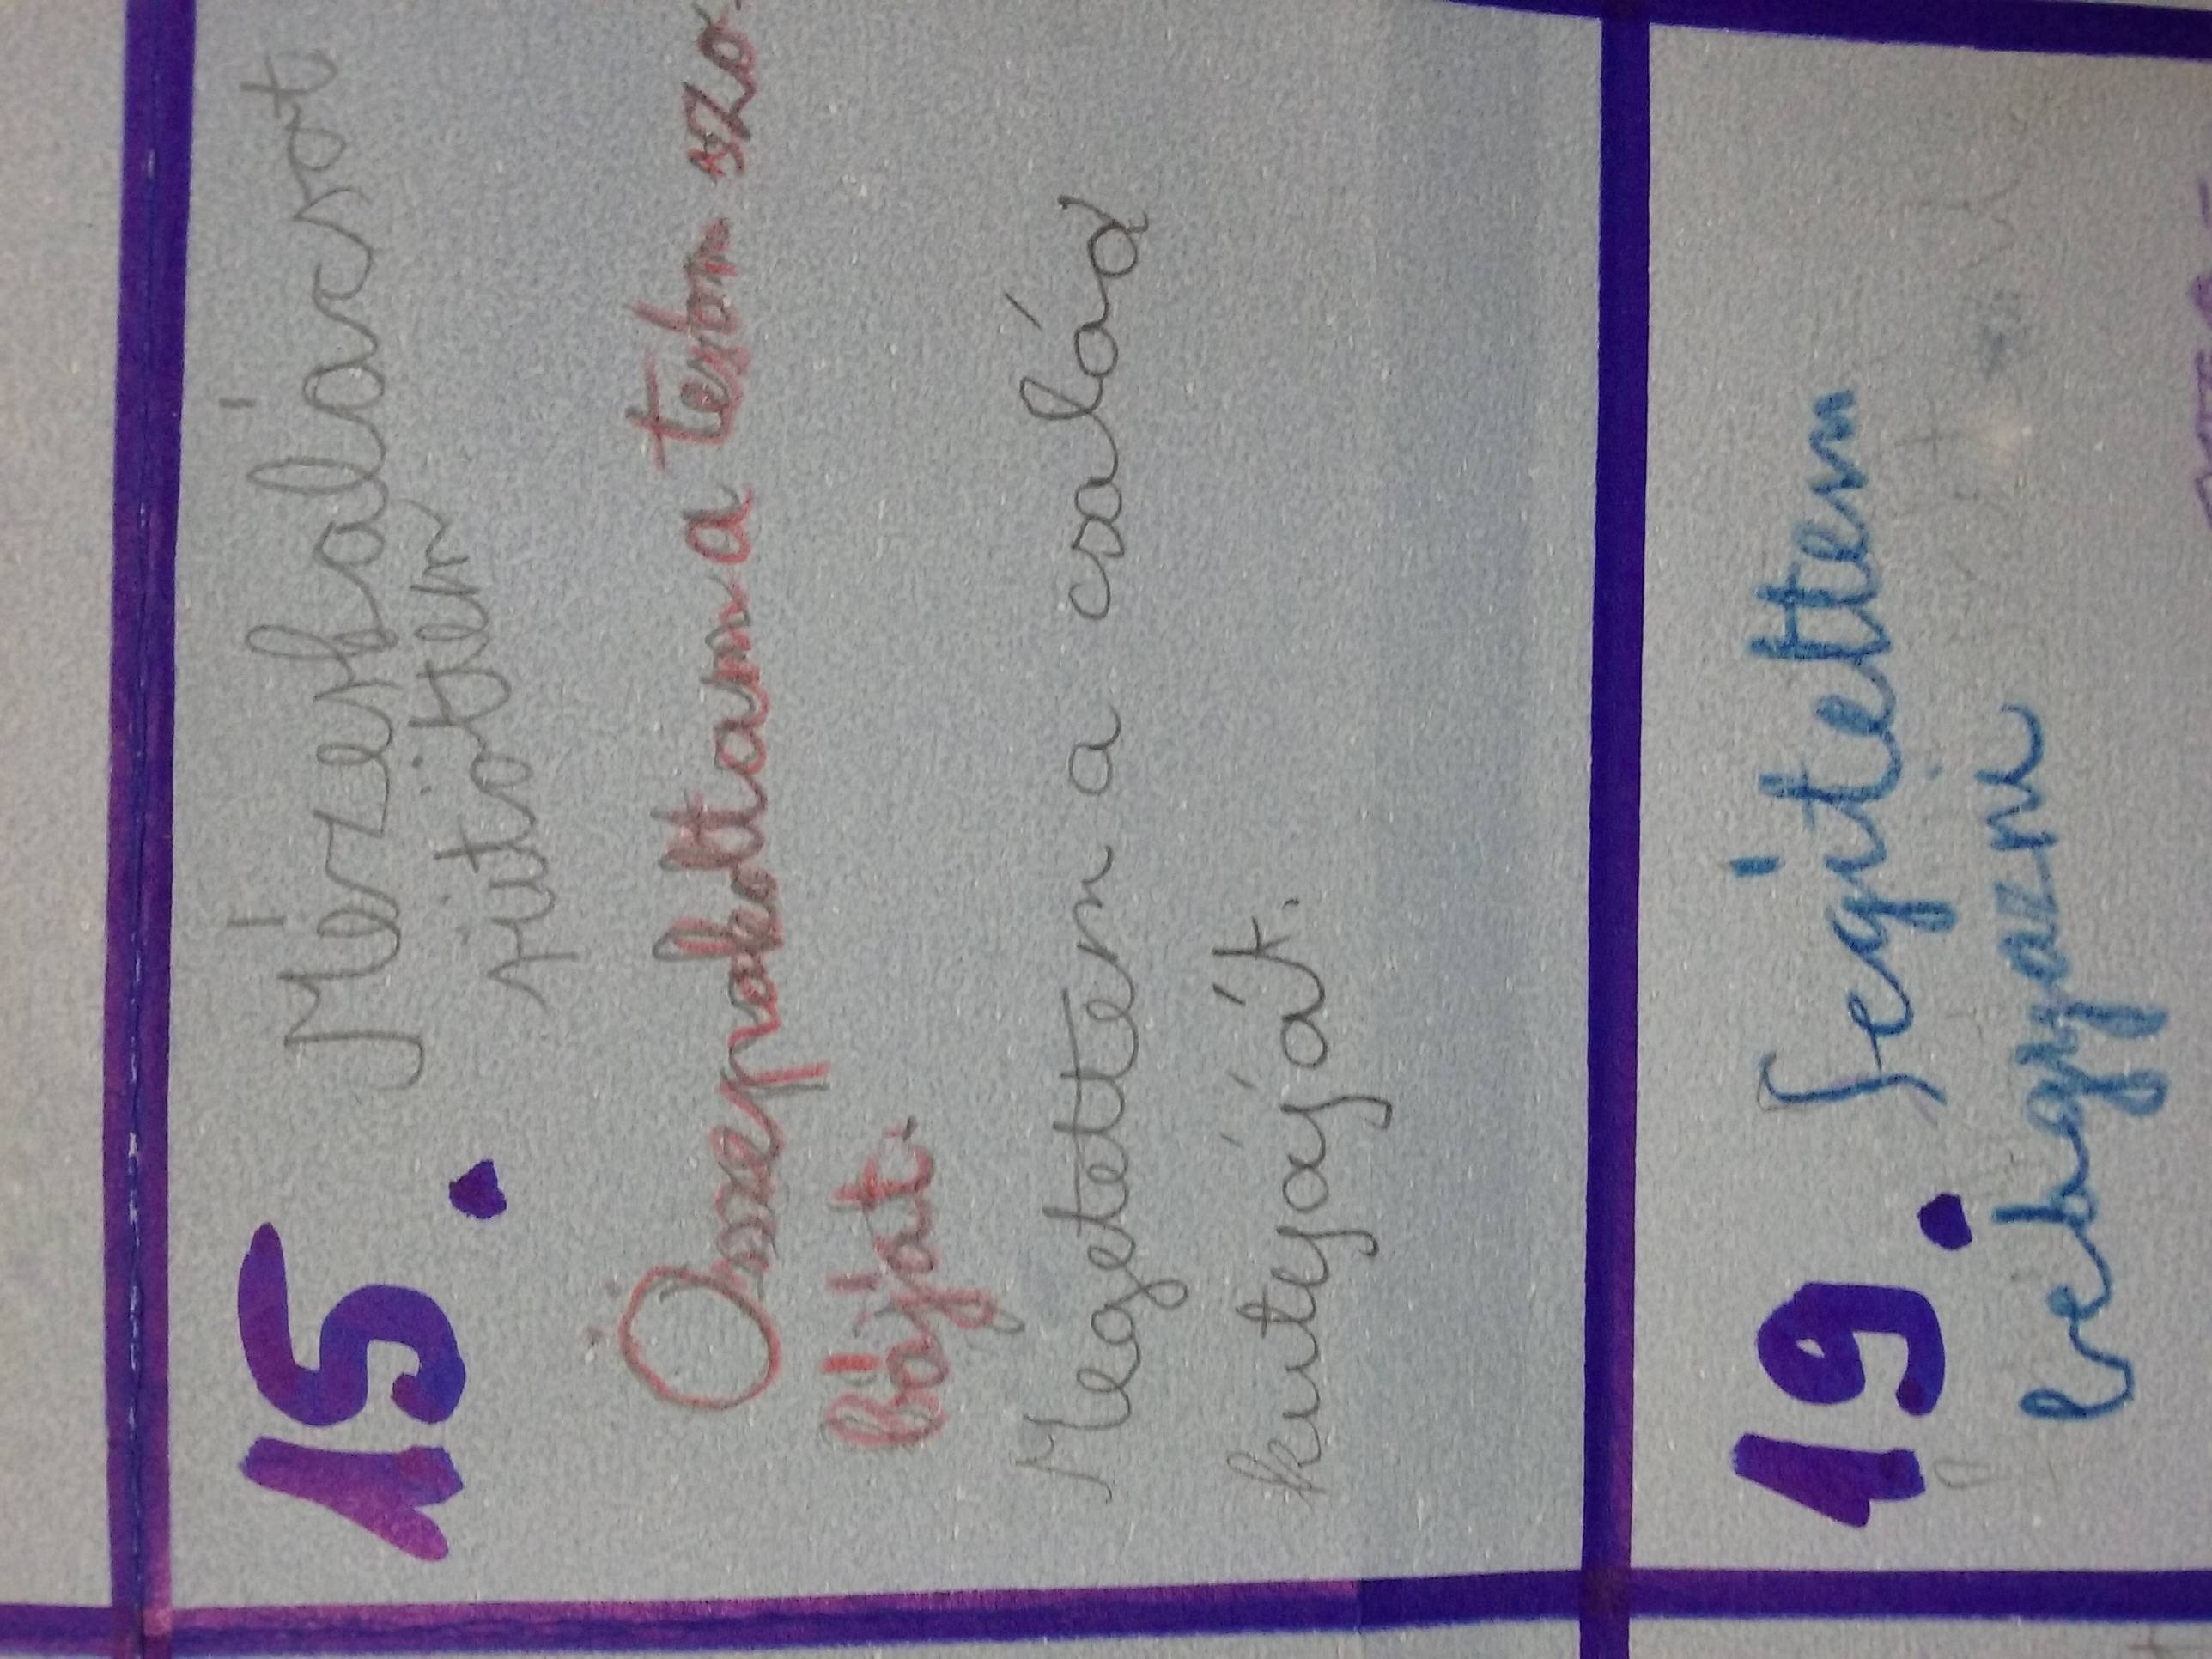 15.
Mézeskalácsot
sütöttem
Összepakoltam a tesom szo
báját.
Megetettem a család
kutyáját.
19.
Segítettem
behagyazni